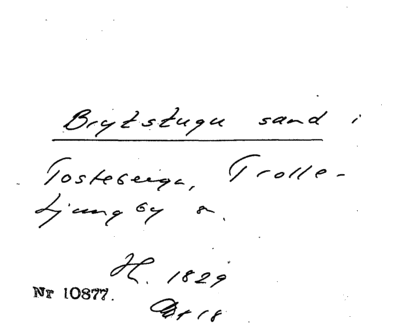 Brytstugu sand i
Tosteberga, Trolle-
Ljungby s.
H. 1829
Nr 10877.
18